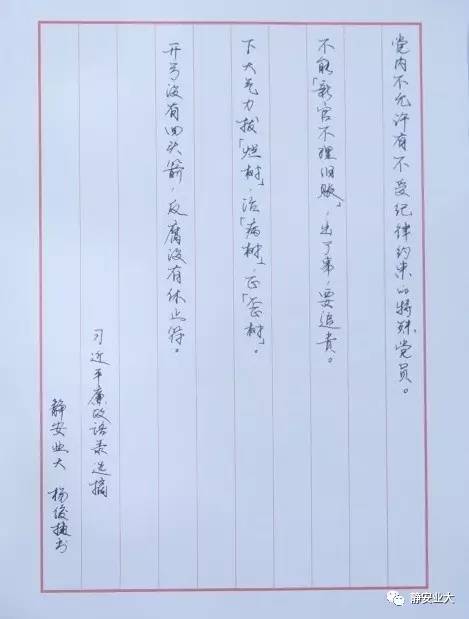 党内不允许有不受纪律约束的特殊党员。
不能「新官不理旧账」，出了事，要追责。
下大气力拔「烂树」，治「病树」，正「歪树」。
开弓没有回头箭，反腐没有休止符。
习近平廉政语录选摘
静安业大 杨俊捷书
静安业大